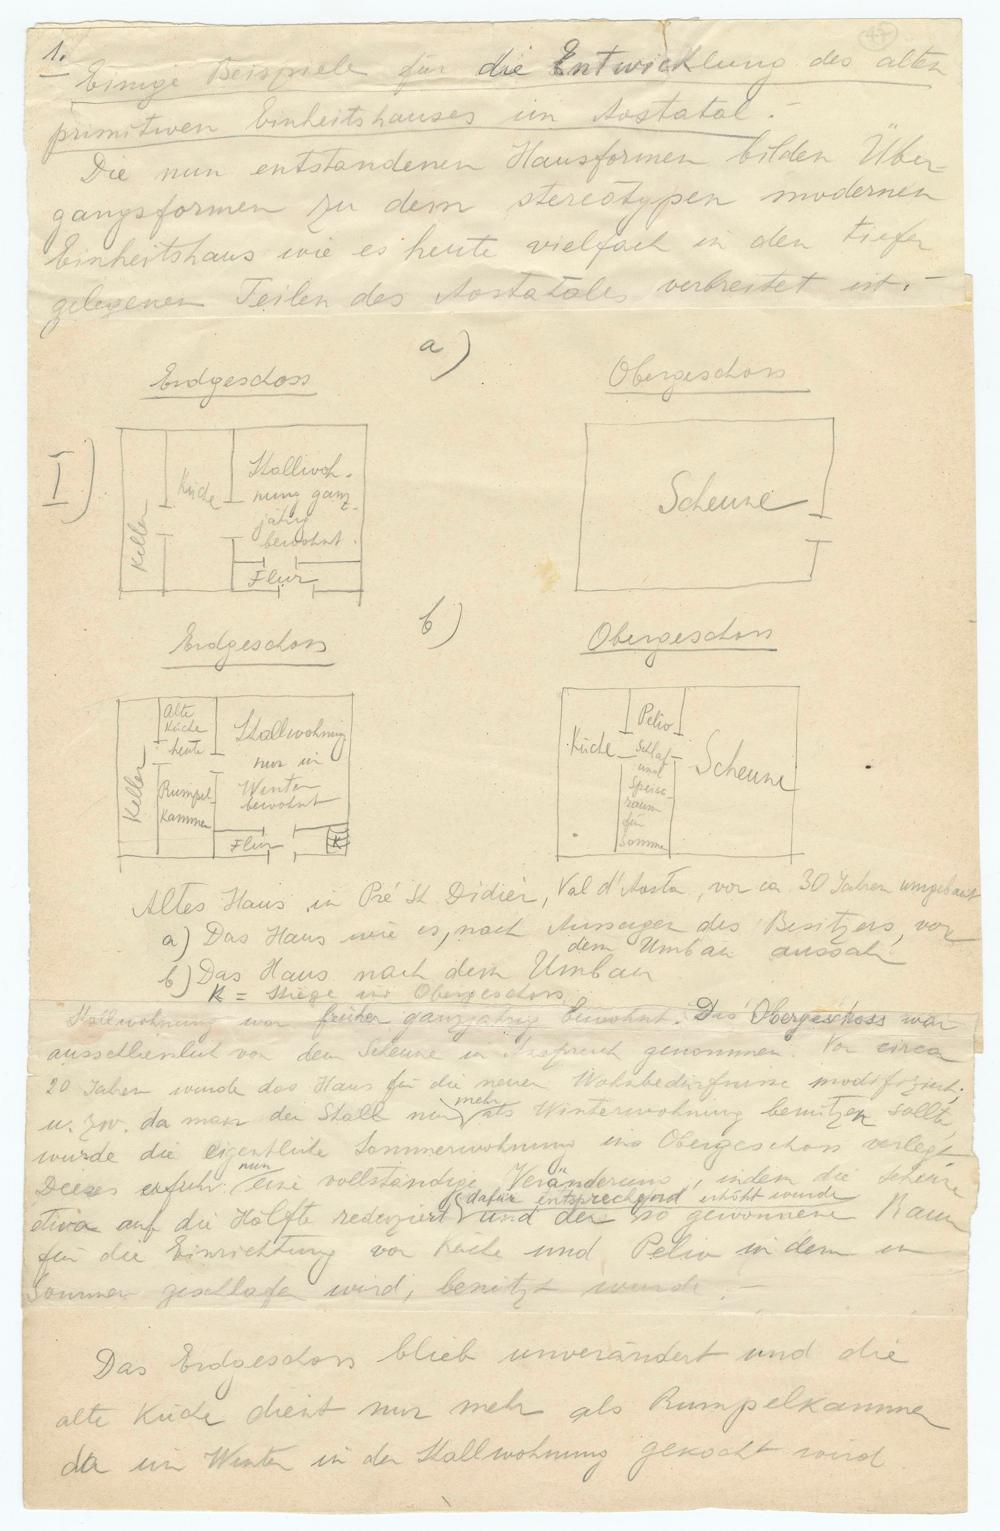 47
1.
Einige Beispiele für die Entwicklung des alten
primitiven Einheitshauses im Aostatal.-
Die nun entstandenen Hausformen bilden Über-
gangsformen zu dem stereotypen modernen
Einheitshaus wie es heute vielfach in den tiefer
gelegenen Teilen des Aostatales verbreitet ist.-
a)
Erdgeschoss
Obergeschoss
I)
Keller
Küche
Stallwoh-
nung ganz-
jährig
bewohnt.
Flur
Scheune
b)
Erdgeschoss
Obergeschoss
Keller
Alte
Küche
heute
Rumpel-
kammer
Stallwohnung
nur im
Winter
bewohnt
Flur
K
Küche
Pelio
Schlaf
und
Speise-
raum
für
Sommer
Scheune
Altes Haus in Pré St Didier, Val d'Aosta, vor ca 30 Jahren umgebaut
a) Das Haus wie es, nach Aussagen des Besitzers, vor
dem Umbau aussah
b) Das Haus nach dem Umbau
K = Stiege ins Obergeschoss
Stallwohnung war früher ganzjährig bewohnt. Das Obergeschoss war
ausschliesslich von dem Scheune in Anspruch genommen. Vor circa
20 Jahren wurde das Haus für die neuen Wohnbedürfnisse modifiziert;
u. zw. da man den Stall nur mehr als Winterwohnung benützen sollte,
wurde die eigentliche Sommerwohnung ins Obergeschoss verlegt.
Dieses erfuhr nun eine vollständige Veränderung, indem die Scheune
etwa auf die Hälfte reduziert (dafür entsprechend erhöht wurde
und der so gewonnene Raum
für die Einrichtung von Küche und Pelio in dem im
Sommer geschlafen wird, benützt wurde.-
Das Erdgeschoss blieb unverändert und die
alte Küche dient nur mehr als Rumpelkammer
da im Winter in der Stallwohnung gekocht wird